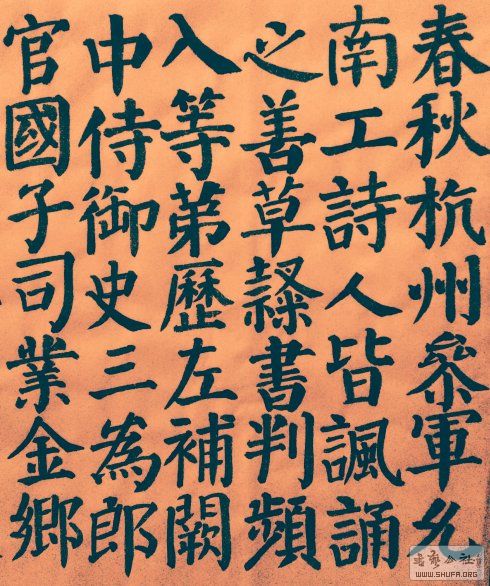 春秋杭州叅軍允
南工詩人皆諷誦
之善草隸書判頻
入等第歷左補闕
中侍御史三為郎
官國子司業金鄉
書藝公社
WWW.SHUFA.ORG